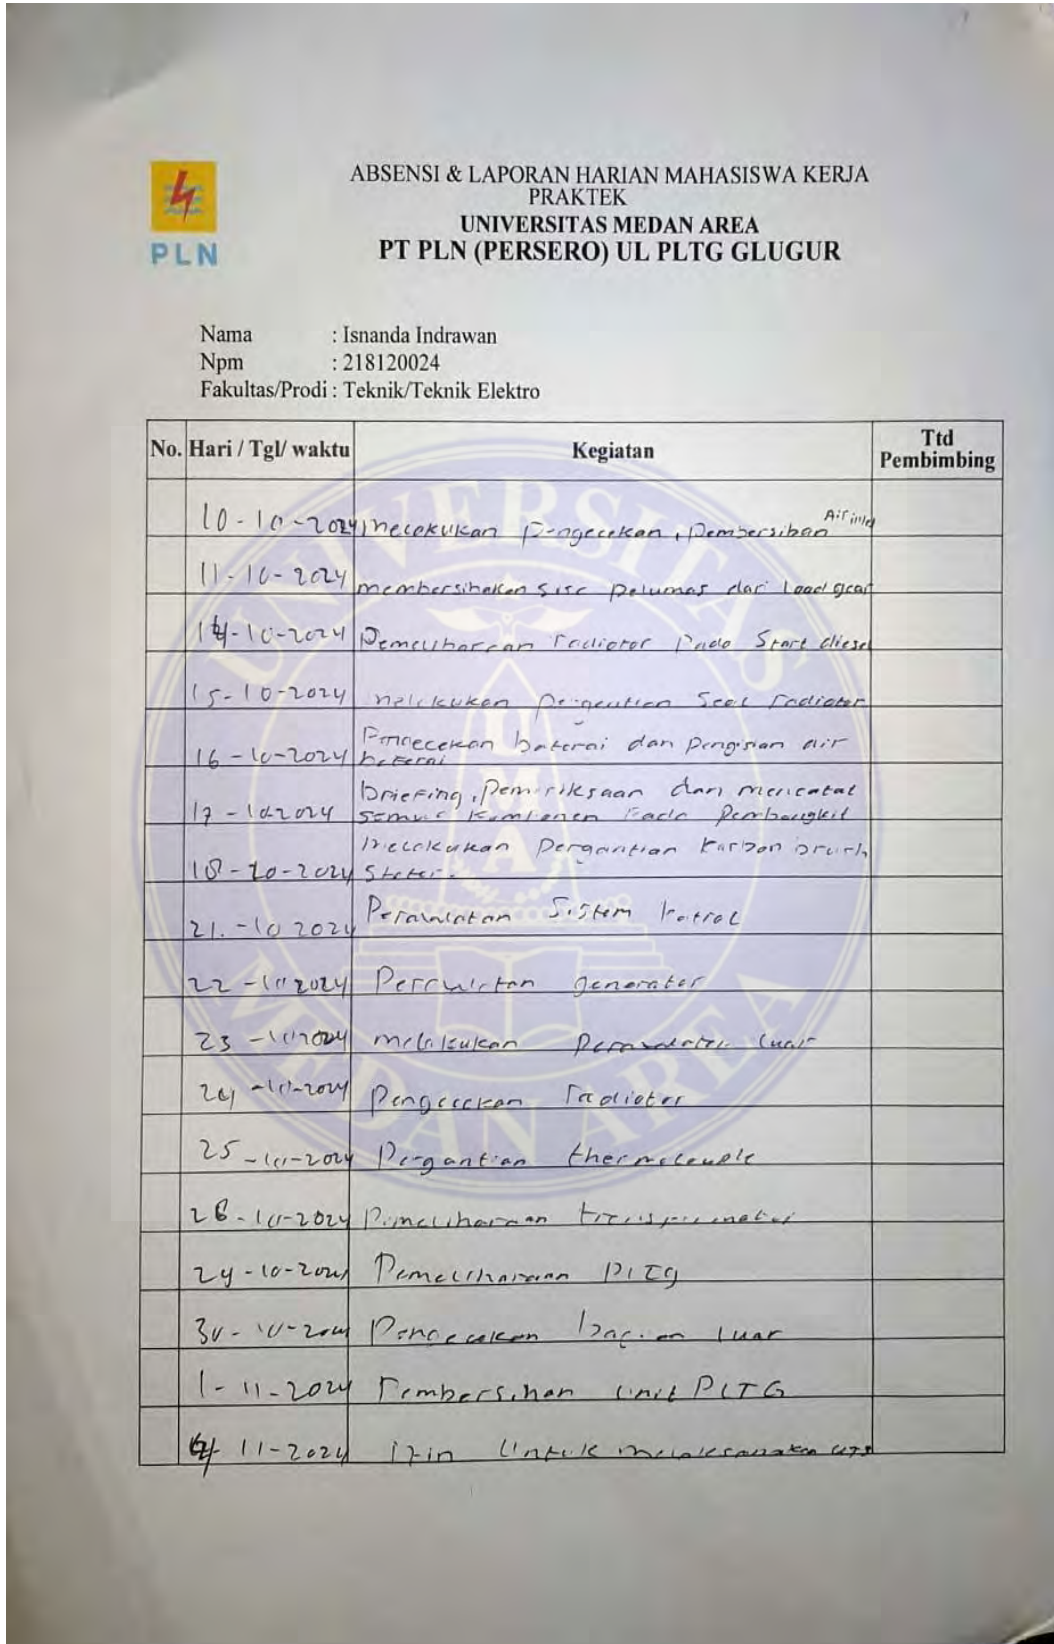 PLN
ABSENSI & LAPORAN HARIAN MAHASISWA KERJA
PRAKTEK
UNIVERSITAS MEDAN AREA
PT PLN (PERSERO) UL PLTG GLUGUR
Nama : Isnanda Indrawan
Npm : 218120024
Fakultas/Prodi : Teknik/Teknik Elektro
No. Hari / Tgl/ waktu Kegiatan Ttd Pembimbing
10-10-2024 melakukan pengecekan, pembersihan Air inlet
11-10-2024 membersihakan sisa pelumas dari load gear
14-10-2024 Pemeliharaan radiator pada Start diesel
15-10-2024 melakukan pergantian Seal radiator
Pengecekan baterai dan pengisian air
16-10-2024 baterai
briefing, pemeriksaan dan mencatat
17-10-2024 semua komponen pada pembangkit
melakukan pergantian karbon brush
18-10-2024 stater.
21-10 2024 Perawatan Sistem kotrol
22-10 2024 Perawatan generator
23-10 2024 melakukan perawatan luar
24-10-2024 Pengecekan radiator
25-10-2024 Pergantian thermocouple
-10-2024 Pemeliharaan
-10-2024 Pemeliharaan PLTG
30-10-2024 Pengecekan bagian luar
1-11-2024 Pembersihan unit PLTG
4 11-2024 Izin Untuk melaksanakan UTS
UNIVERSITAS
MEDAN AREA
UMA